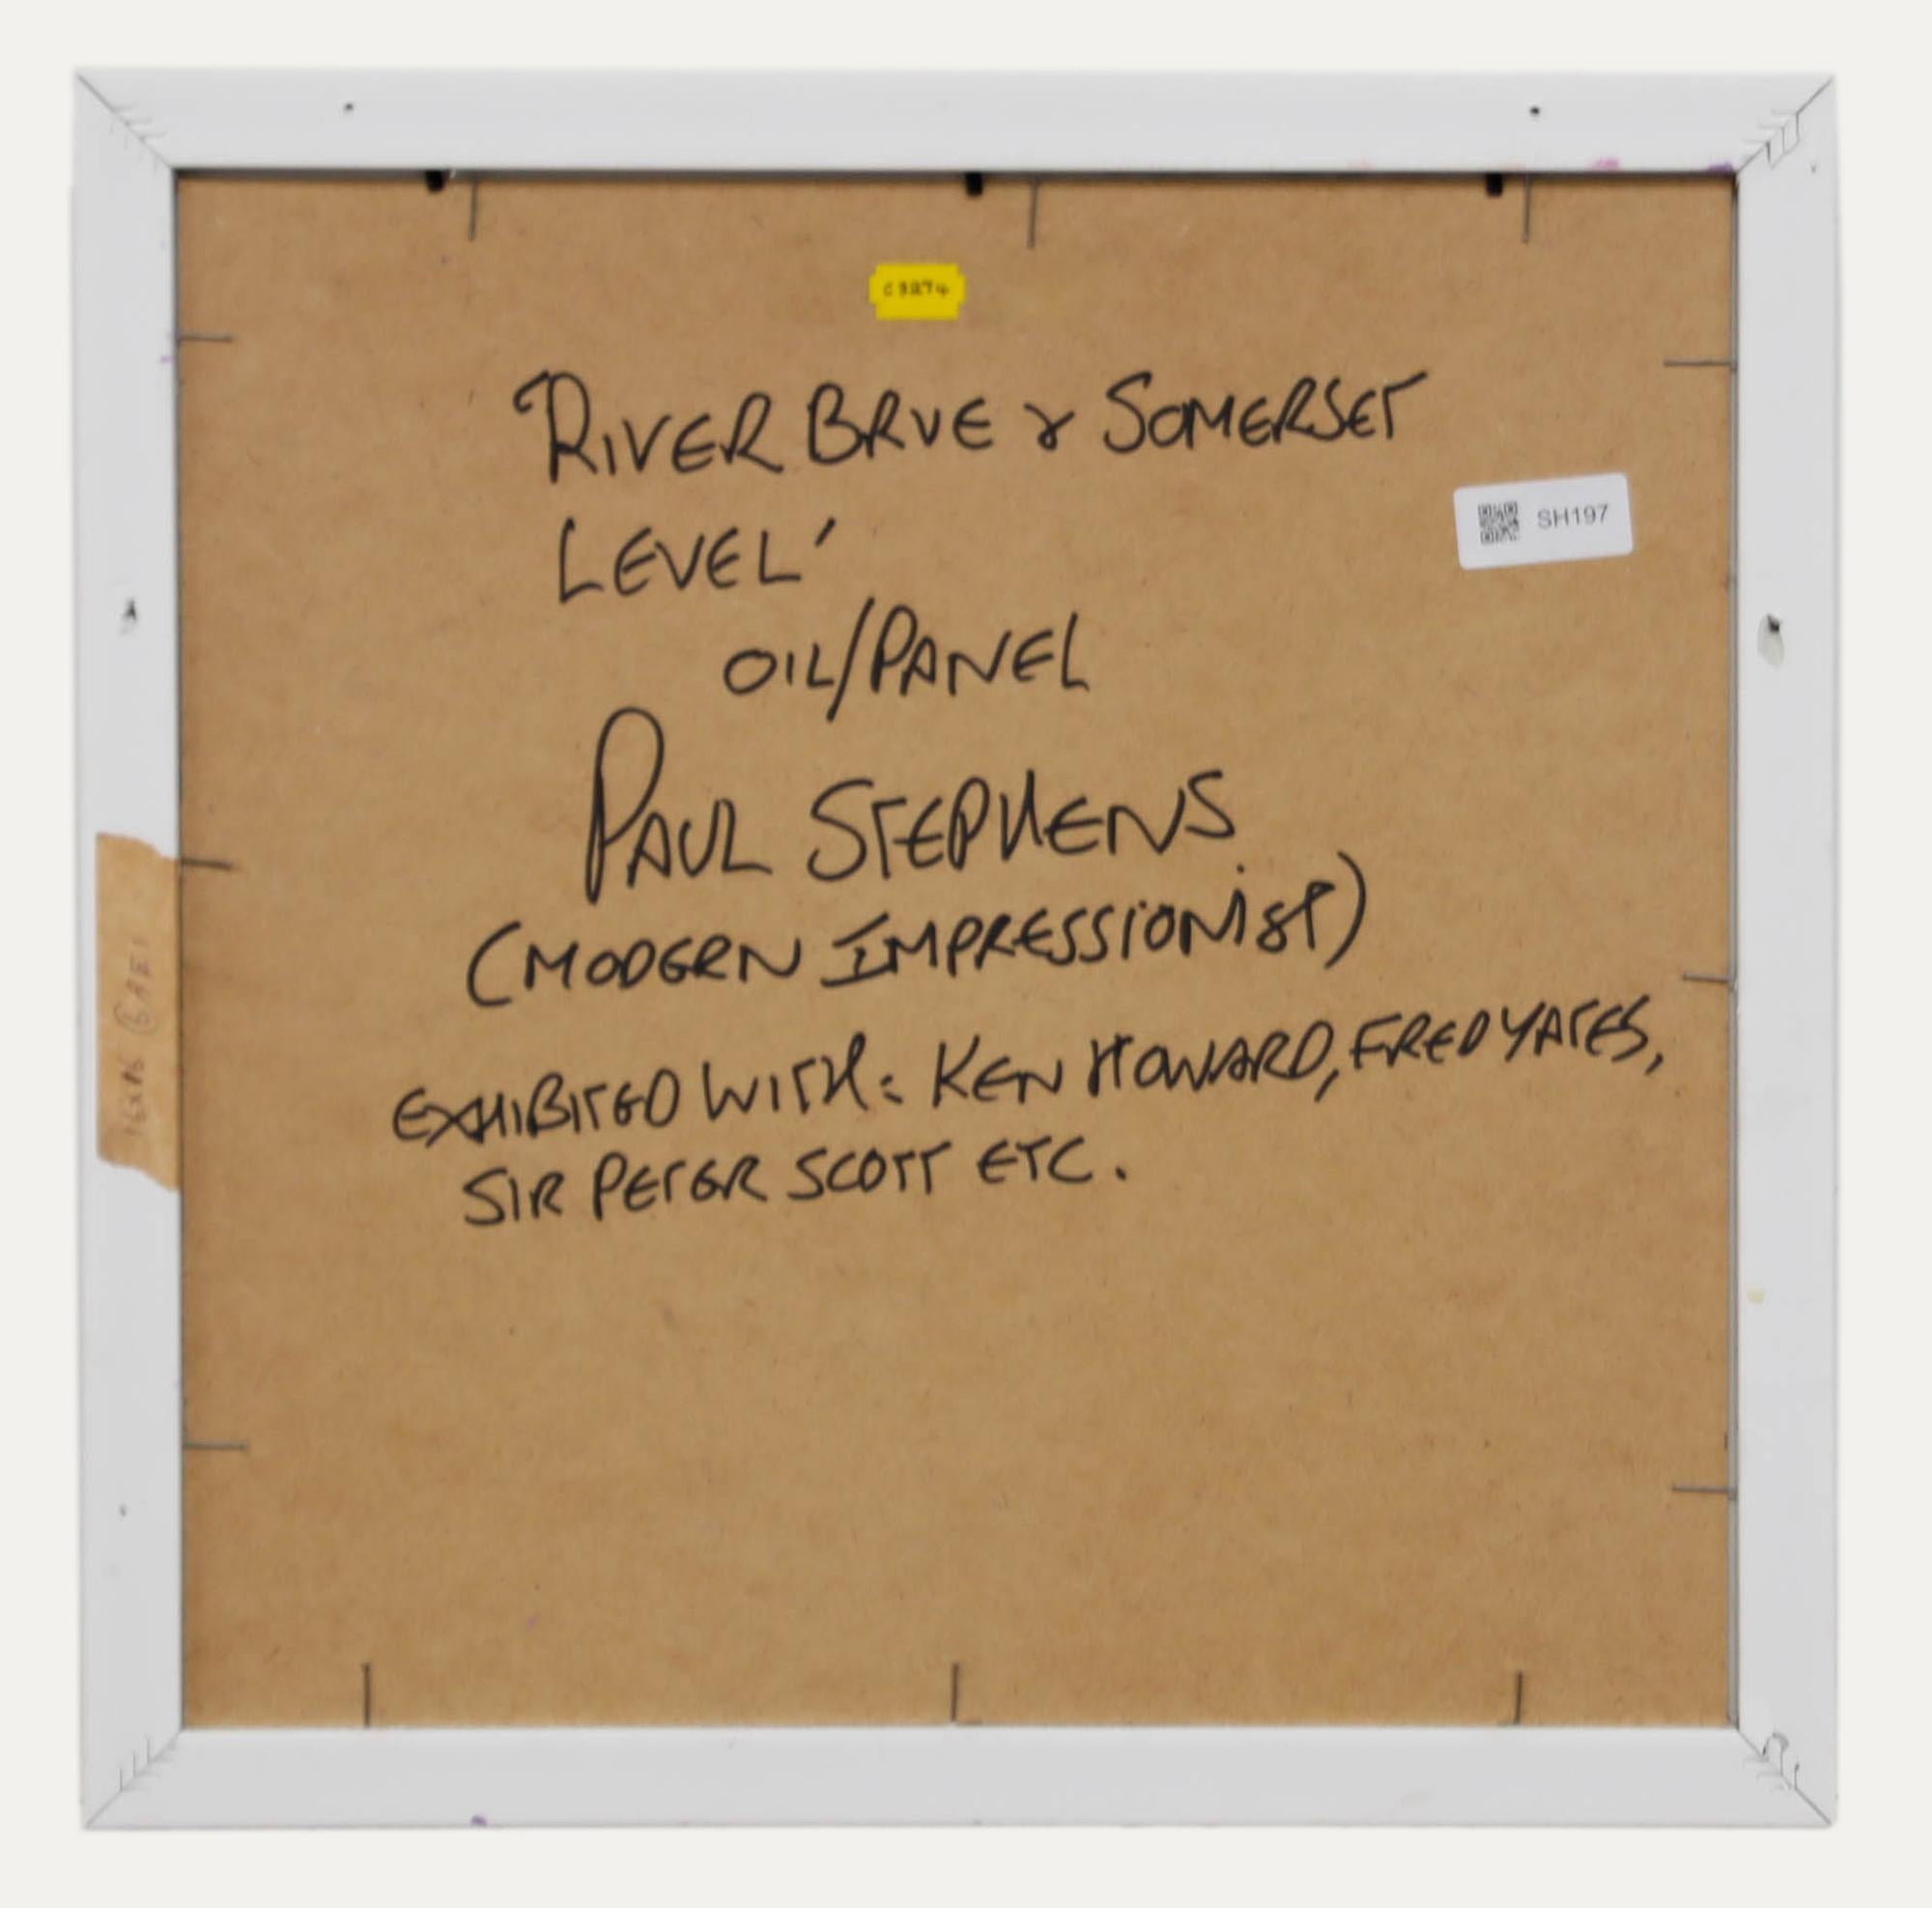 C3274
'RIVER BRUE & SOMERSET
SH197
LEVEL'
OIL/PANEL
PAUL STEPHENS
(MODERN IMPRESSIONIST)
EXHIBITED WITH: KEN HOWARD, FRED YATES,
SIR PETER SCOTT ETC.